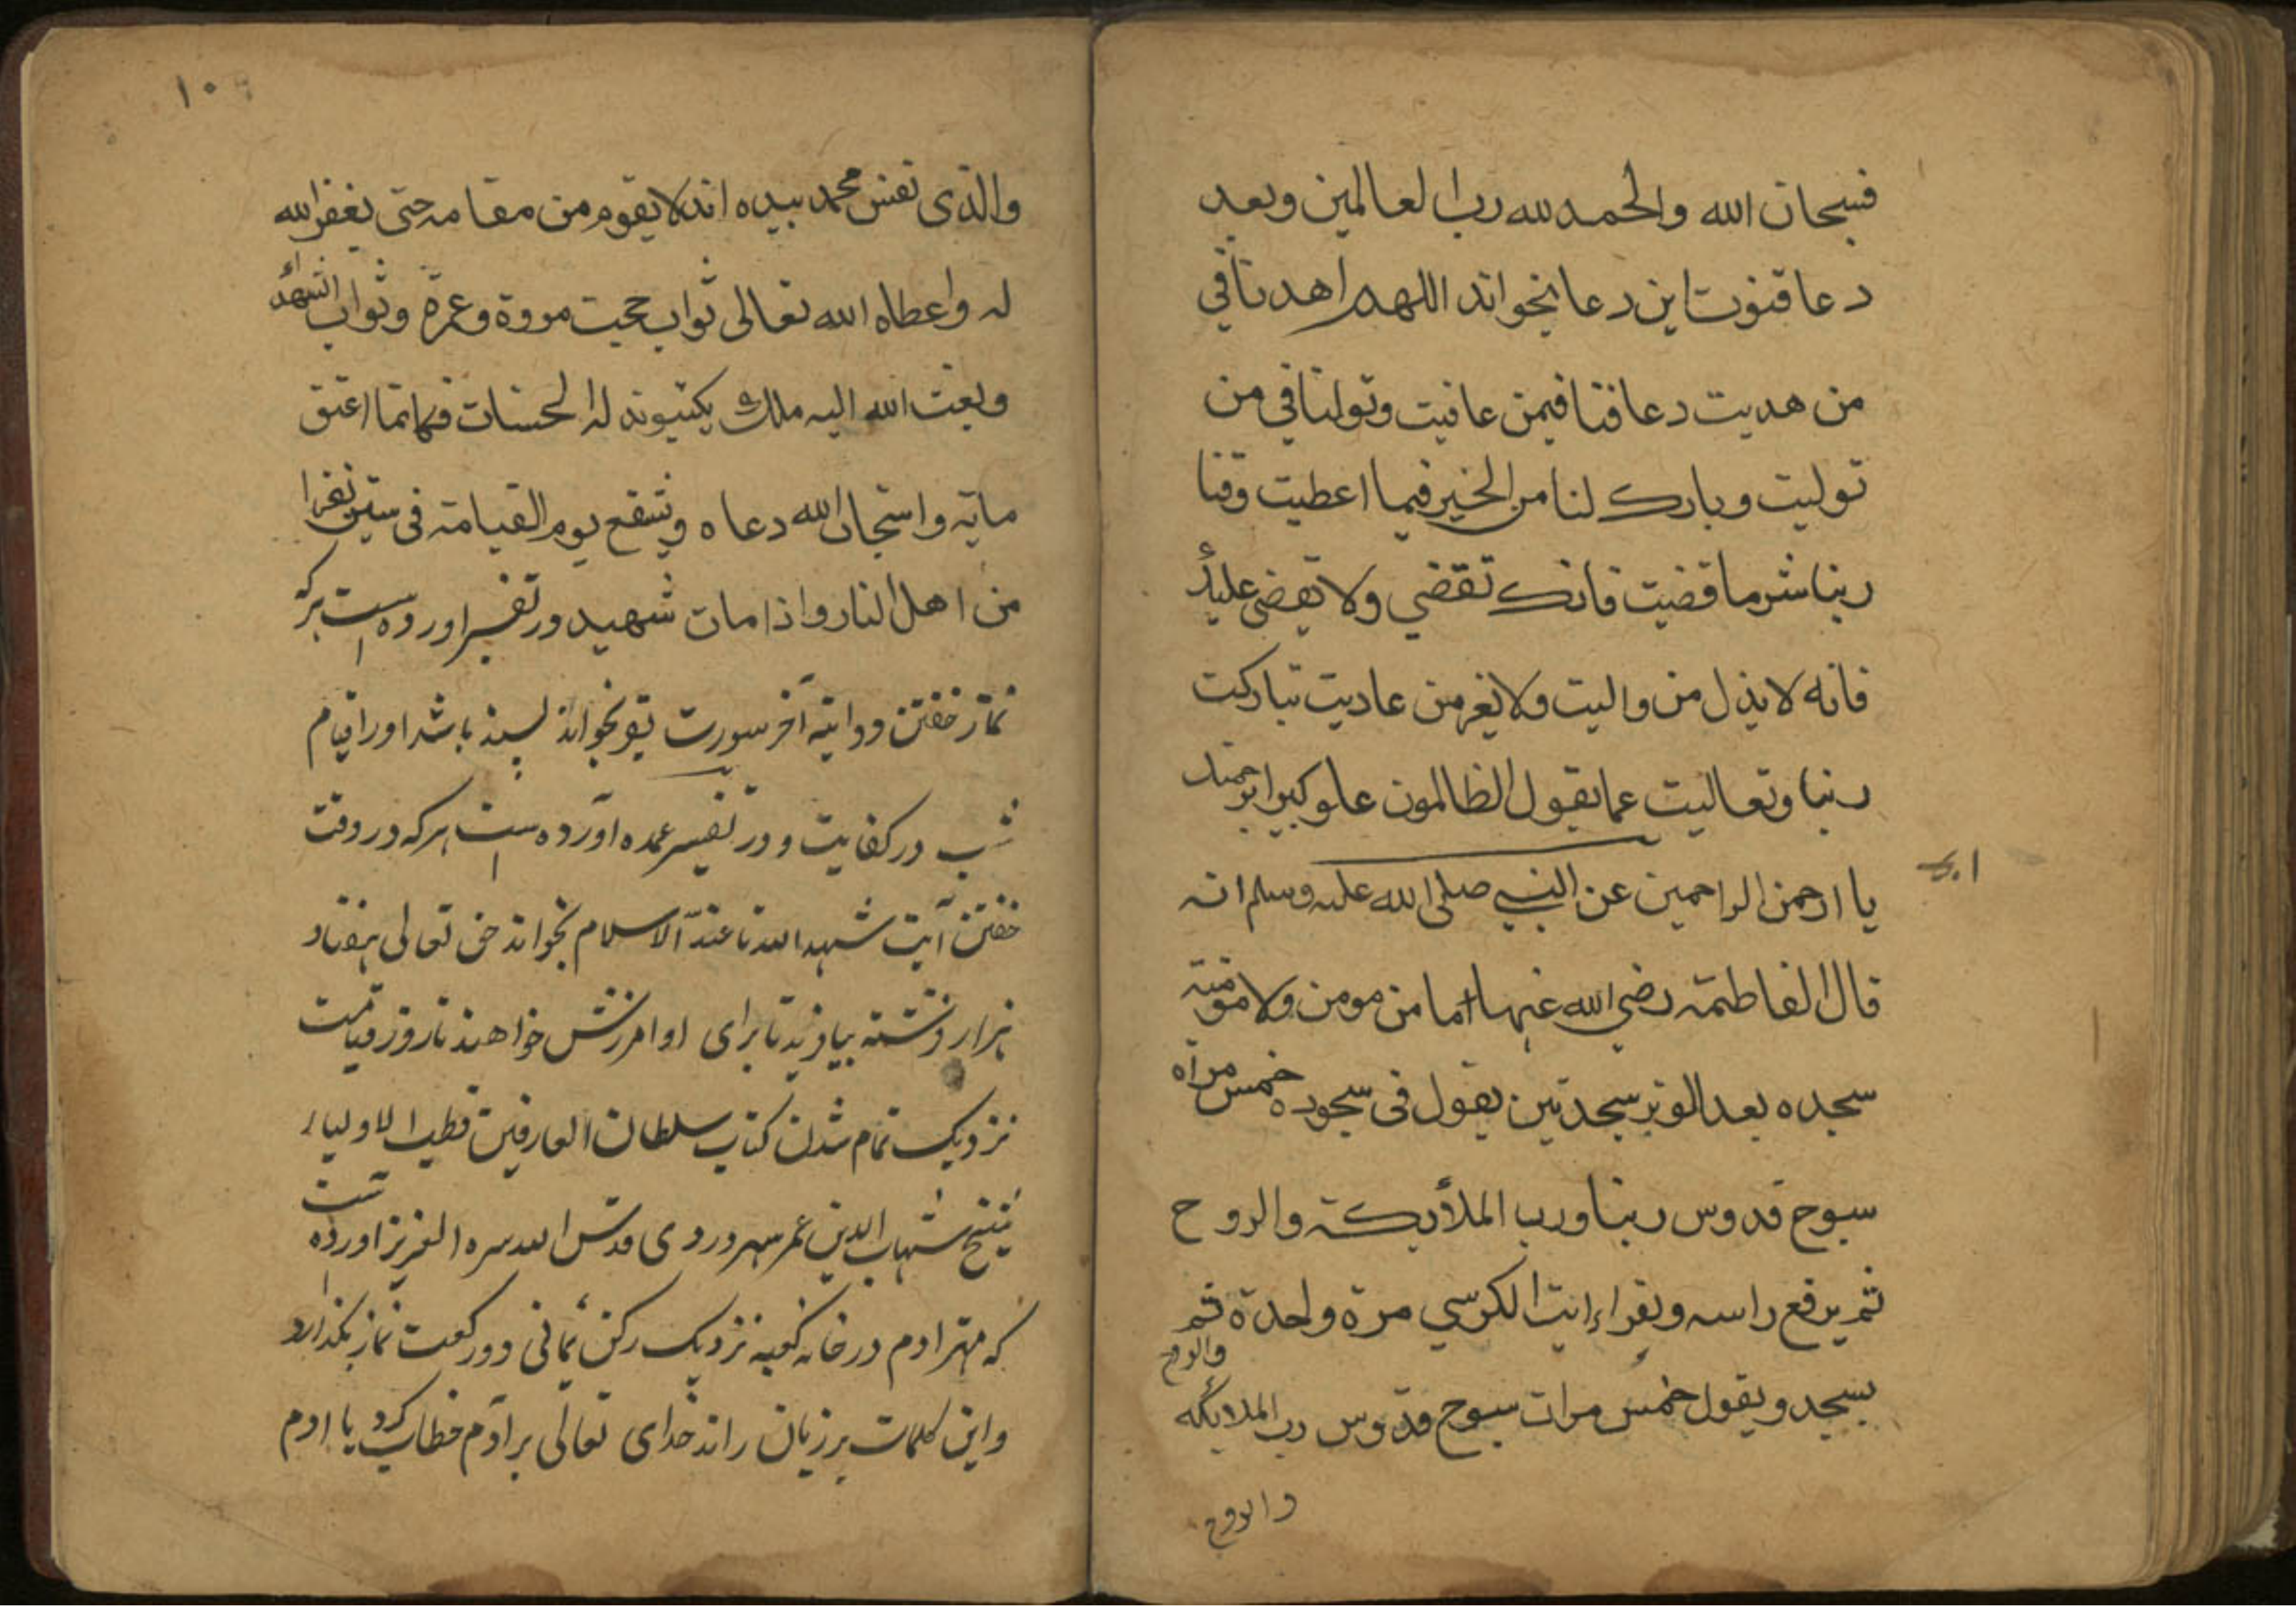 فسبحان الله والحمد لله رب العالمين وبعد
دعا قنوت اين دعا بخواند اللهم اهدنا في
من هديت دعافنا فيمن عافيت وتولنا في من
توليت وبارك لنا من الخير فيما اعطيت وقنا
ربنا شر ما قضيت فانك تقضي ولا يقضى عليك
فانه لا يذل من واليت ولا يعز من عاديت تباركت
ربنا وتعاليت عما يقول الظالمون علو كبيرا برحمتك
يا ارحمن الراحمين عن النبي صلى الله عليه وسلم انه
قال الفاطمة رضي الله عنها ما من مومن ولا مومنة
سجده بعد الوتر سجدتين يقول فى سجوده خمس مراه
سبوح قدوس ربنا ورب الملأيكة والروح
ثم يرفع راسه ويقراء ايت الكرسي مرة واحدة ثم
يسجد ويقول خمس مرات سبوح قدوس رب الملايكه
والروح
والروح
١٠
والذى نفس محمد بيده انه لا يقوم من مقامه حتى يغفر الله
له واعطاه الله تعالى ثواب حجيت مروة وعمرة وثواب الشهداء
وبعث الله اليه ملك يكتبون له الحسنات فكانما اعتق
مايه واستجاب الله دعاه ويشفع يوم القيامة فى ستين نفرا
من اهل النار واذا مات شهيد ودر تفسير اورده است هركه
نماز خفتن دو ايته آخر سورت بقر بخواند بسند باشد اورا قيام
شب در كفايت و در تفسير عمده آورده است هركه در وقت
خفتن آيت شهد الله تا عند الاسلام بخواند حق تعالى هفتاد
هزار فرشته بيافريند تا براى او امرزش خواهند تا روز قيامت
نزديك تمام شدن كتاب سلطان العارفين قطب الاولياء
شيخ شهاب الدين عمر سهروردى قدس الله سره العزيز اورده است
كه مهتر ادم در خانه كعبه نزديك ركن يمانى دو ركعت نماز بگذارد
واين كلمات بر زبان راند خداى تعالى بر آدم خطاب كرد يا ادم